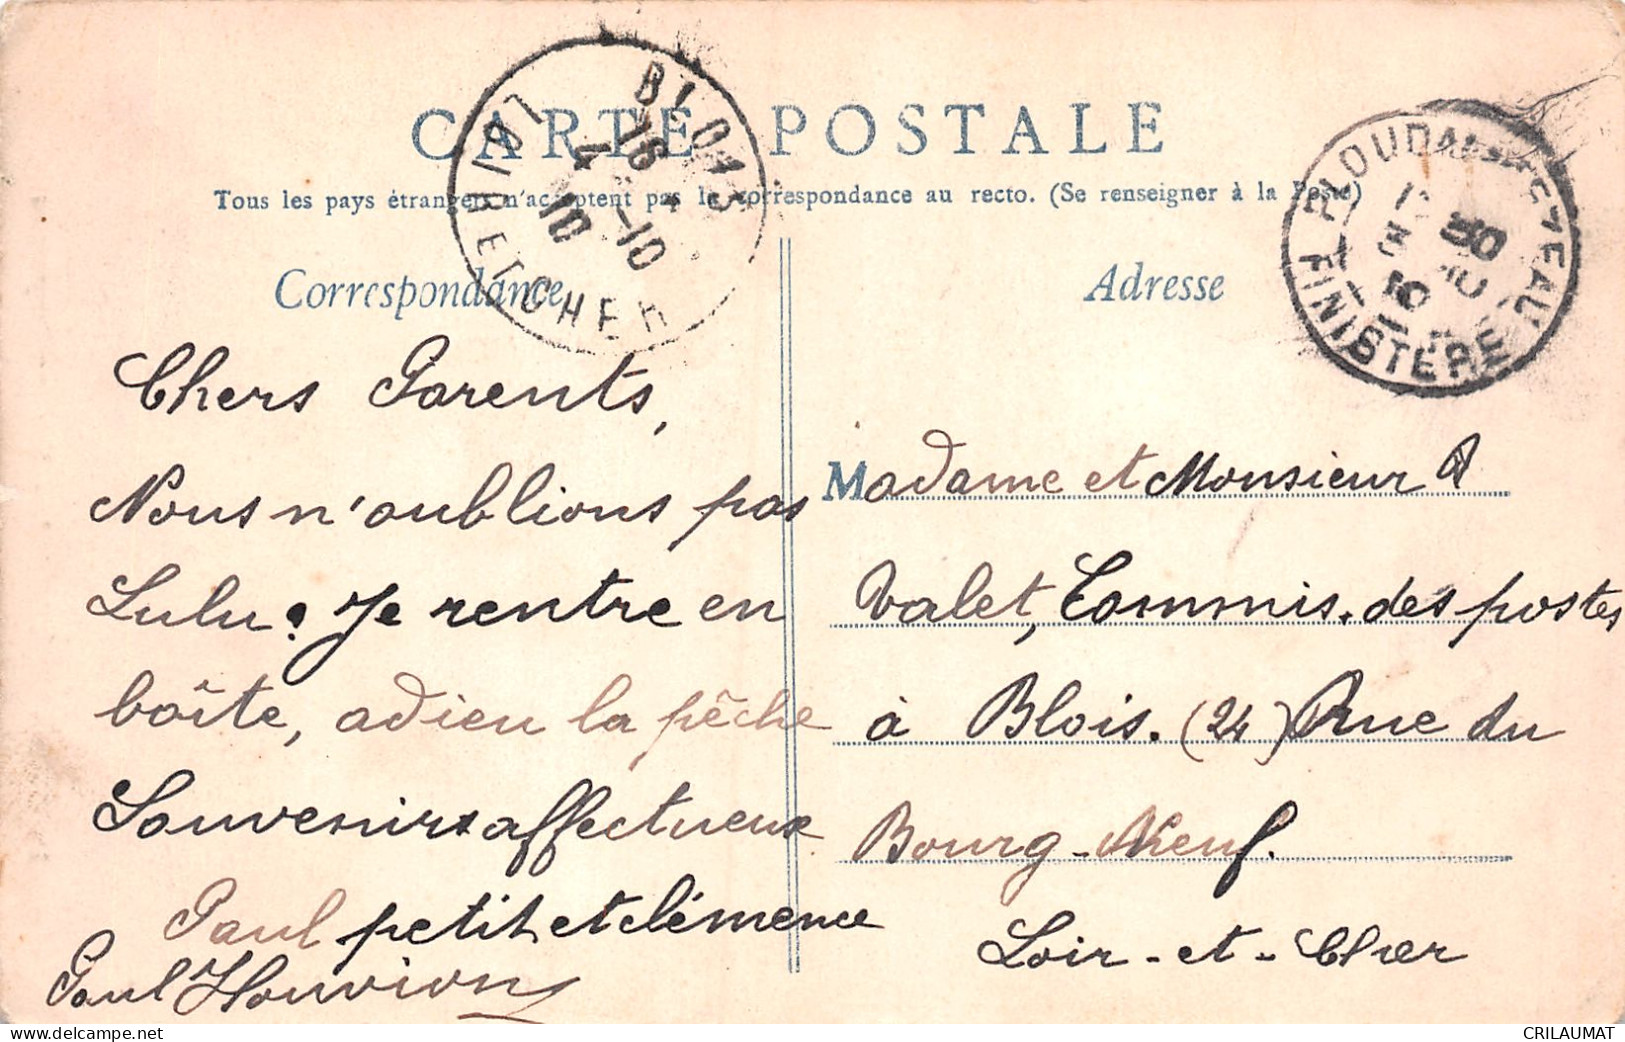 CARTE POSTALE
Tous les pays étrangers n'acceptent pas la correspondance au recto. (Se renseigner à la Poste)
BLOIS
16
4 4-10
10
LOIR ET CHER
PLOUDALMEZEAU
FINISTÈRE
Correspondance
Chers Parents,
Nous n'oublions pas
Lulu. Je rentre en
boîte, adieu la pêche
Souvenirs affectueux
Paul petit et clémence
Paul Houvion
Adresse
Madame et Monsieur A
Valet, Commis. des postes
à Blois. (24) Rue du
Bourg-Neuf.
Loir-et-Cher
www.delcampe.net
CRILAUMAT